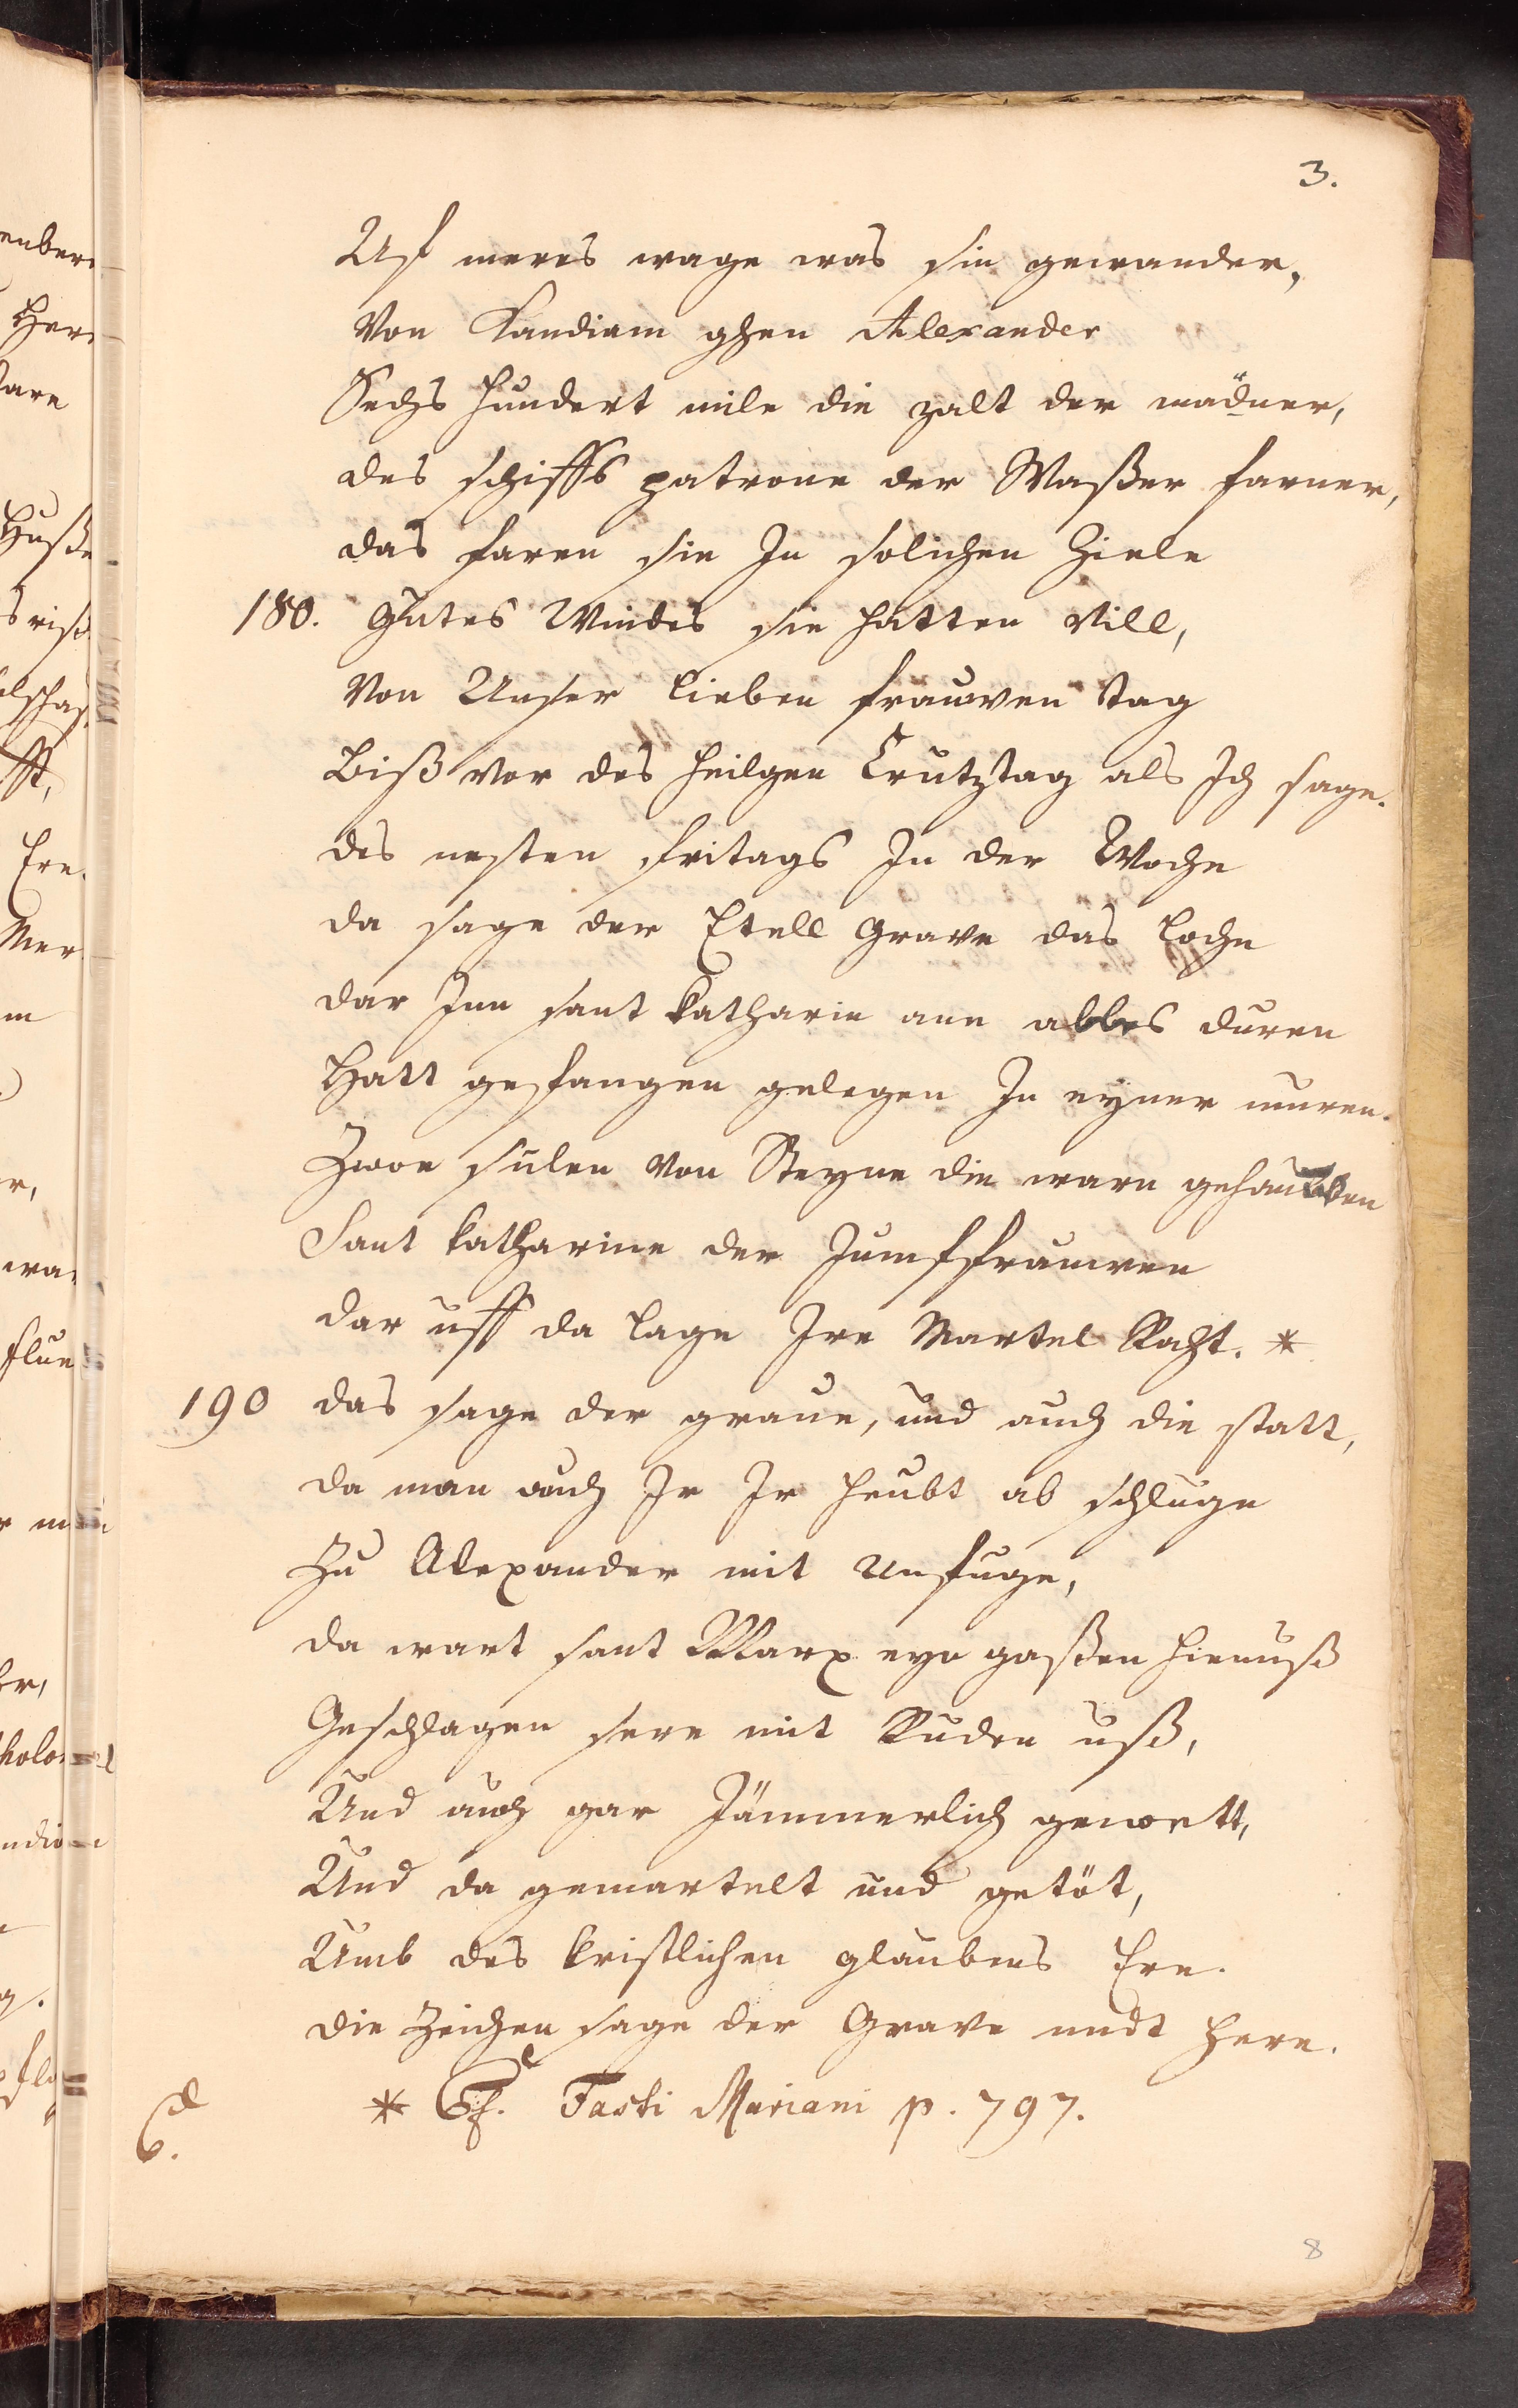 3.
Uf meres wage was sin gewander,
Von Kandiam ghen Alexander
Sechs hundert mile die zalt der mädner,
des schiffs patrone der Waßer farner,
das faren sie In solichen Ziele
180. Gutes Windes sie hatten Vill,
Von Unser lieben frauwen tag
Biß vor des heilgen Crutztag als Ich sage.
des nesten fritags In der Woche
da sage der Etell Grave das Loche
dar Inn sant Katharin ane abbes duren
Hatt gefangen gelegen In eyner muren.
Zwoe sulen Von Steyne die warn gehauwen
Sant Katharine der Jumffrauwen
dar uff da lage Ire Martel Racht. *
190 das sage der graue, und auch die statt,
da man auch Ir Ir heubt ab schluge
Zu Alexander mit Unfuge,
da wart sant Marx eyn gaßen hienuß
Geschlagen sere mit Ruden uß,
Und auch gar Jämmerlich genoett,
Und da gemartelt und getöt,
Umb des Cristlichen glaubens Ere.
die Zeichen sage der Grave undt Here.
* Cf. Fasti Mariani p. 797.
8